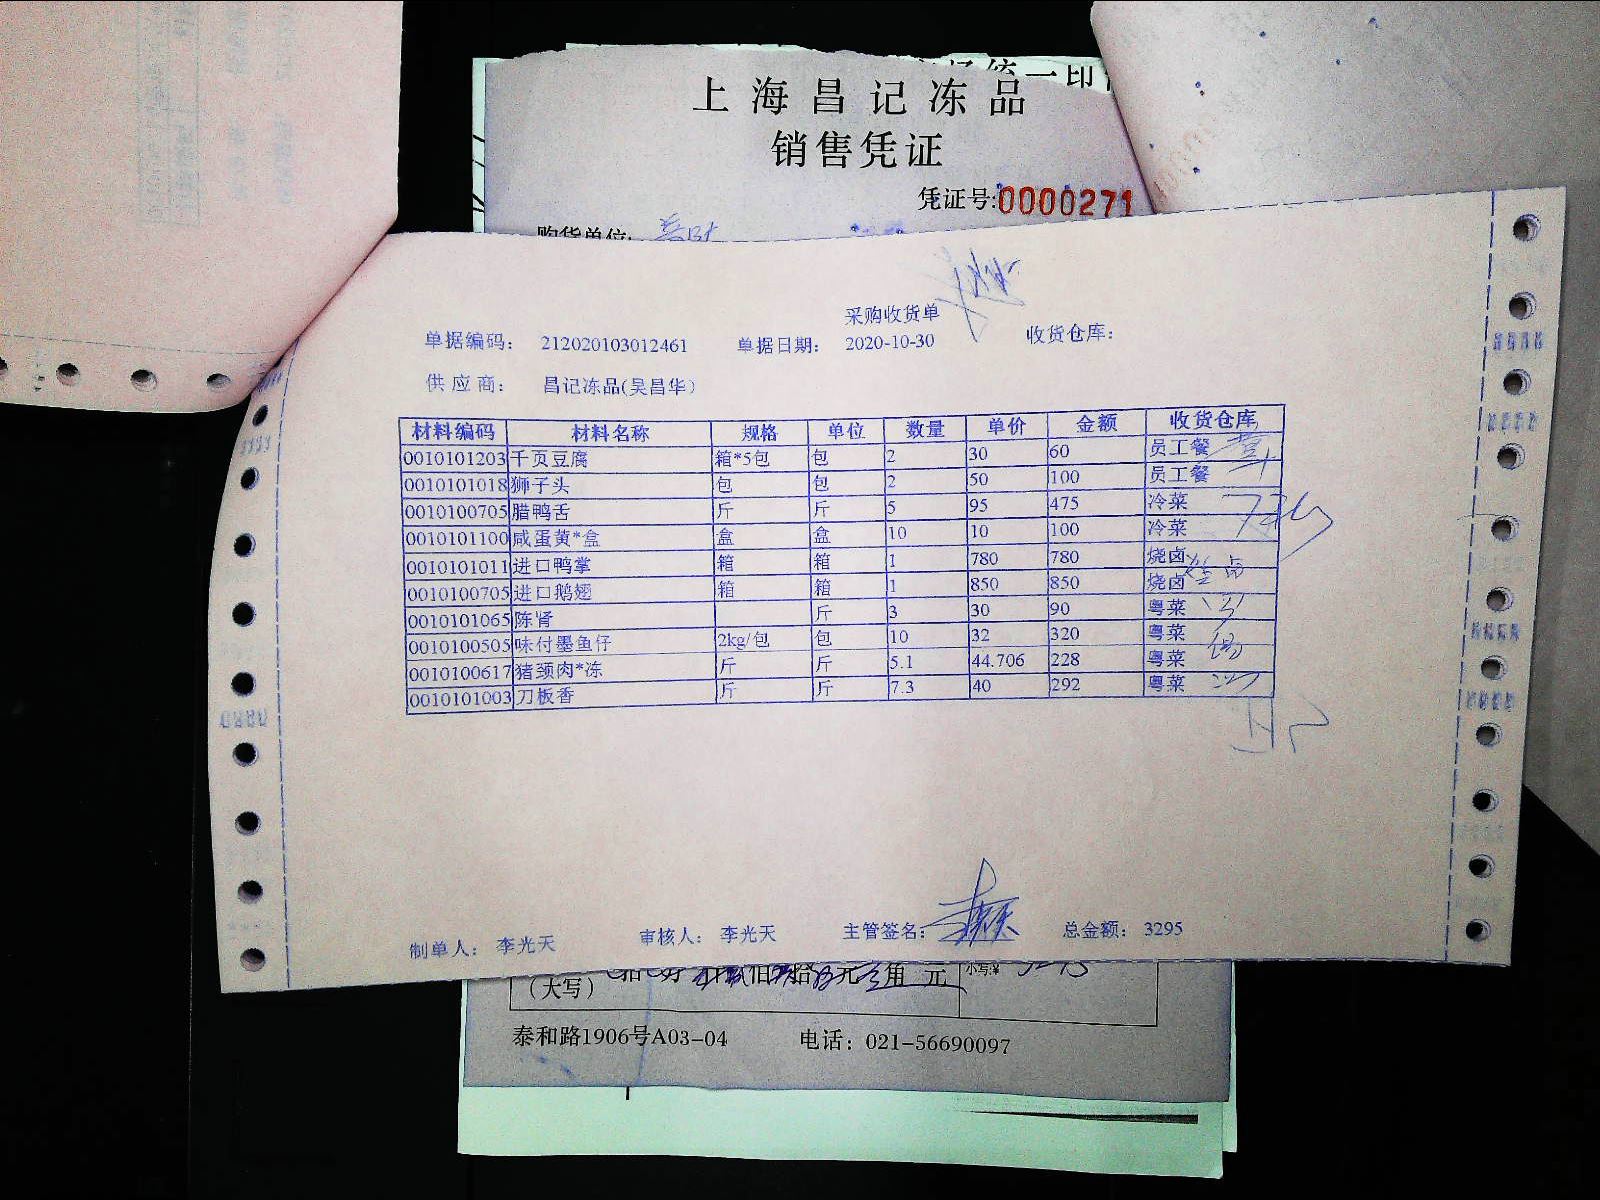 统一印
上海昌记冻品
销售凭证
凭证号:0000271
购货单位:
采购收货单
单据编码: 212020103012461 单据日期: 2020-10-30 收货仓库:
供应商: 昌记冻品(吴昌华)
材料编码 材料名称 规格 单位 数量 单价 金额 收货仓库
0010101203 千页豆腐 箱*5包 包 2 30 60 员工餐
0010101018 狮子头 包 包 2 50 100 员工餐
0010100705 腊鸭舌 斤 斤 5 95 475 冷菜
0010101100 咸蛋黄*盒 盒 盒 10 10 100 冷菜
0010101011 进口鸭掌 箱 箱 1 780 780 烧卤
0010100705 进口鹅翅 箱 箱 1 850 850 烧卤
0010101065 陈肾 斤 3 30 90 粤菜
0010100505 味付墨鱼仔 2kg/包 包 10 32 320 粤菜
0010100617 猪颈肉*冻 斤 斤 5.1 44.706 228 粤菜
0010101003 刀板香 斤 斤 7.3 40 292 粤菜
制单人: 李光天 审核人: 李光天 主管签名: 总金额: 3295
(大写) 佰 拾 元 角 元 小写:¥
泰和路1906号A03-04 电话: 021-56690097